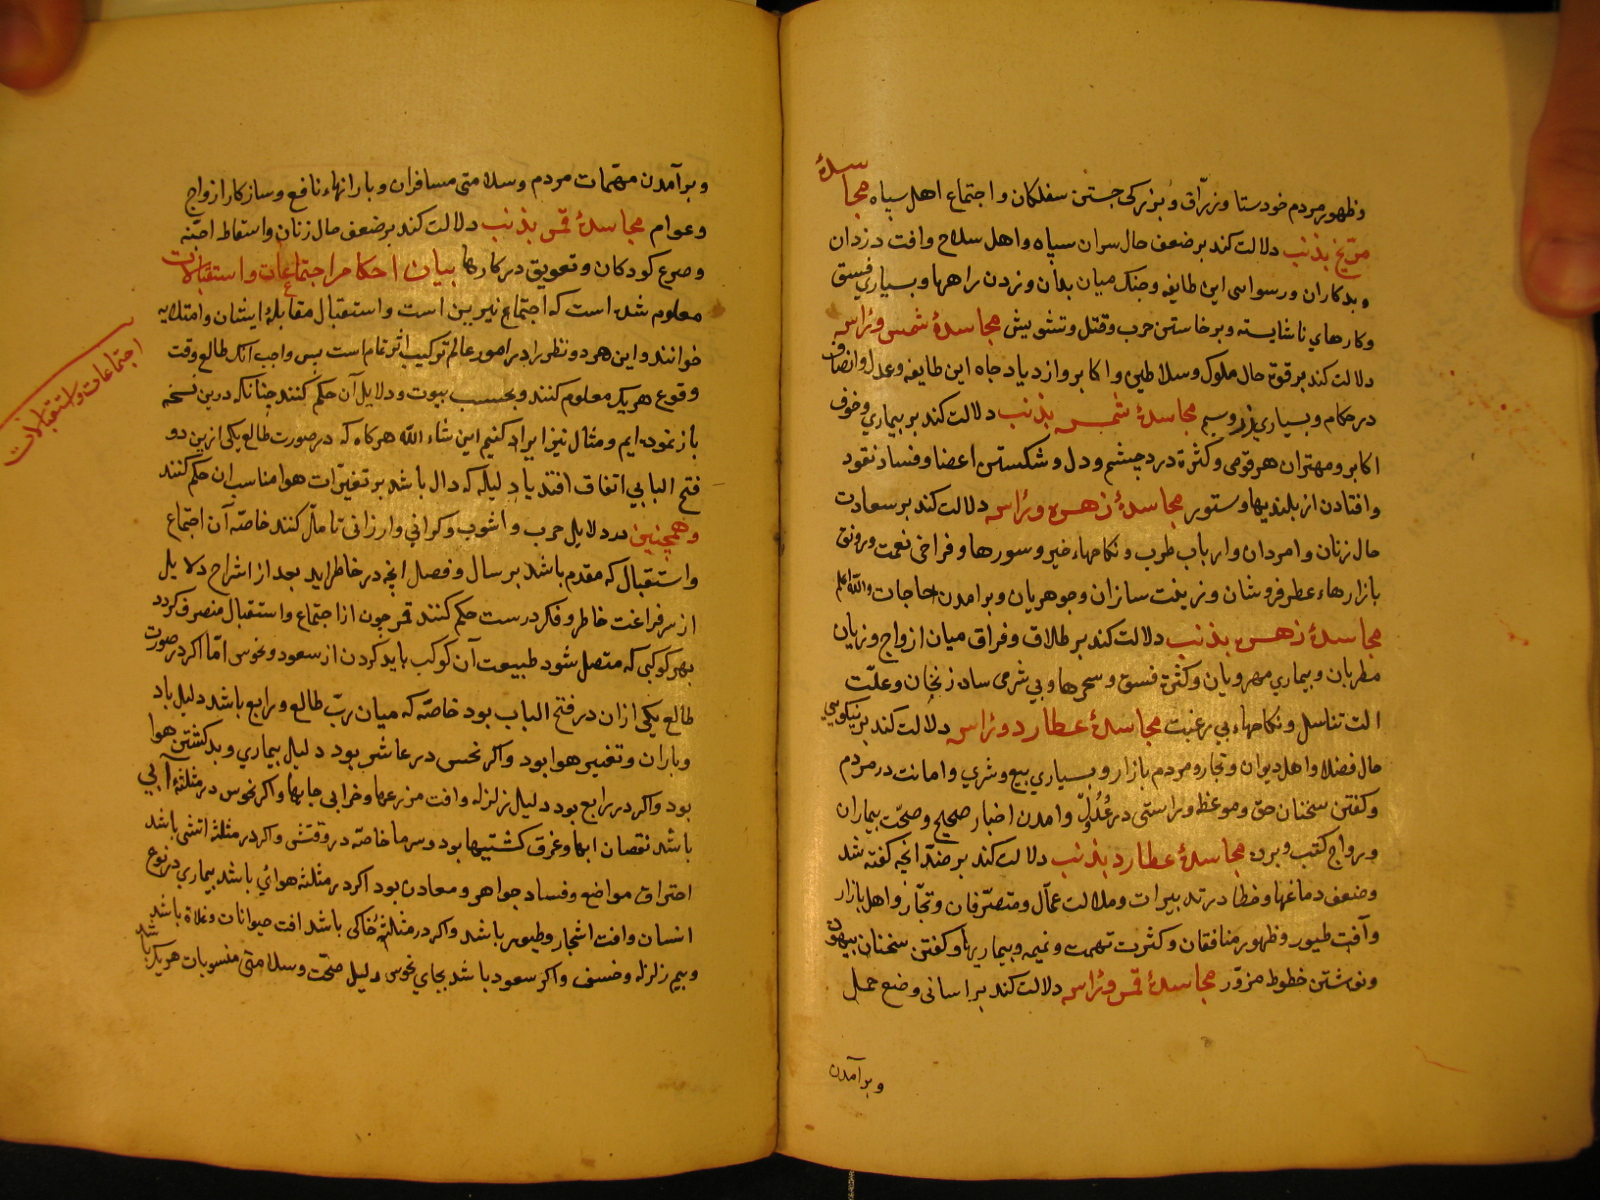 وظهور مردم خودستا وزرّاق وبزرکی جستن سفلکان واجتماع اهل سپاه مجاسدۀ
مرّیخ بذنب دلالت کند بر ضعف حال سران سپاه واهل سلاح وافت دزدان
وبدکاران ورسوایی این طایفه وجنک میان بدان وزدن راهها وبسیاری فسق
وکارهای ناشایسته وبرخاستن حرب وقتل وتشویش مجاسدۀ شمس وراس
دلالت کند بر قوة حال ملوک وسلاطین واکابر وازدیاد جاه این طایفه وعدل وانصاف
در حکام وبسیاری زر وسیم مجاسدۀ شمس بذنب دلالت کند بر بیماری وخوف
اکابر ومهتران هر قومی وکثرة درد چشم ودل وشکستن اعضا وفساد نقود
وافتادن از بلندیها وستور مجاسدۀ زهره وراس دلالت کند بر سعادت
حال زنان وامردان وارباب طرب ونکاحهاء خیر وسورها وفراخی نعمت ورونق
بازارهاء عطر فروشان وزینت سازان وجوهریان وبرامدن حاجات والله اعلم
مجاسدۀ زهره بذنب دلالت کند بر طلاق وفراق میان ازواج وزیان
مطربان وبیماری مهرویان وکثرة فسق وسحرها وبی شرمی ساده زنخان وعلّت
الت تناسل ونکاحهاء بی رغبت مجاسدۀ عطارد وراس دلالت کند بر نیکویی
حال فضلا واهل دیوان وتجار ومردم بازار وبسیاری بیع وشری وامانت در مردم
وکفتن سخنان حق وموعظ وراستی در عُدُول وامدن اخبار صحیح وصحّت بیماران
ورواج کتب وبرده مجاسدۀ عطارد بذنب دلالت کند بر ضدّ انچه کفته شد
وضعف دماغها وخطا در تدبیرات وملالت عمّال ومتصرّفان وتجّار واهل بازار
وآفت طیور وظهور منافقان وکثرت تهمت ونمیمه وبیماریها وکفتن سخنان بیهوده
ونوشتن خطوط مزوّر مجاسدۀ قمر وراس دلالت کند بر اسانی وضع حمل
وبرآمدن
وبرآمدن مهمّات مردم وسلامتی مسافران وبارانهاء نافع وسازکار ازواج
وعوام مجاسدۀ قمر بذنب دلالت کند بر ضعف حال زنان واسقاط اجنّه
وصرع کودکان وتعویق در کارها بیان احکام اجتماعات واستقبالات
معلوم شده است که اجتماع نیرین است واستقبال مقابلۀ ایشان وامتلا یه
خوانند واین هر دو نظر را در امور عالم ترکیب اثر تمام است پس واجب آنکه طالع وقت
وقوع هر یک معلوم کنند وبحسب بیوت ودلایل آن حکم کنند چنانکه درین نسخه
باز نموده ایم ومثال نیز ایراد کنیم این شاء الله هر کاه که در صورت طالع یکی ازین دو
فتح البابی اتفاق افتد یا دلیله که دال باشد بر تغیّرات هوا مناسب ان حکم کنند
وهمچنین در دلایل حرب واشوب وکرانی وارزانی تامّل کنند خاصّه آن اجتماع
واستقبال که مقدم باشد بر سال وفصل انچه در خاطر اید بعد از اشراح دلایل
از سر فراغت خاطر وفکر درست حکم کنند قمر چون از اجتماع واستقبال منصرف کردد
بهر کوکبی که متصل شود طبیعت آن کوکب باید کردن از سعود ونحوس امّا اکر در صورت
طالع یکی ازان در فتح الباب بود خاصّه که میان ربّ طالع ورابع باشد دلیل باد
وباران وتغییر هوا بود واکر نحس در عاشر بود دلیل بیماری وبد کشتن هوا
بود واکر در رابع بود دلیل زلزله وافت مزرعها وخرابی جایها واکر نحوس در مثلثه آبی
باشد نقصان ابها وغرق کشتیها بود وسرما خاصّه در وقتش واکر در مثلثه اتشی باشد
احتراق مواضع وفساد جواهر ومعادن بود اکر در مثلثه هوائی باشد بیماری در نوع
انسان وافت اشجار وطیور باشد واکر در مثلثه خاکی باشد افت حیوانات وغلاة باشد
وبیم زلزله وخسف واکر سعود باشد بجای نحوس دلیل صحّت وسلامتی منسوبات هر یک باشد
اجتماعات واستقبالات